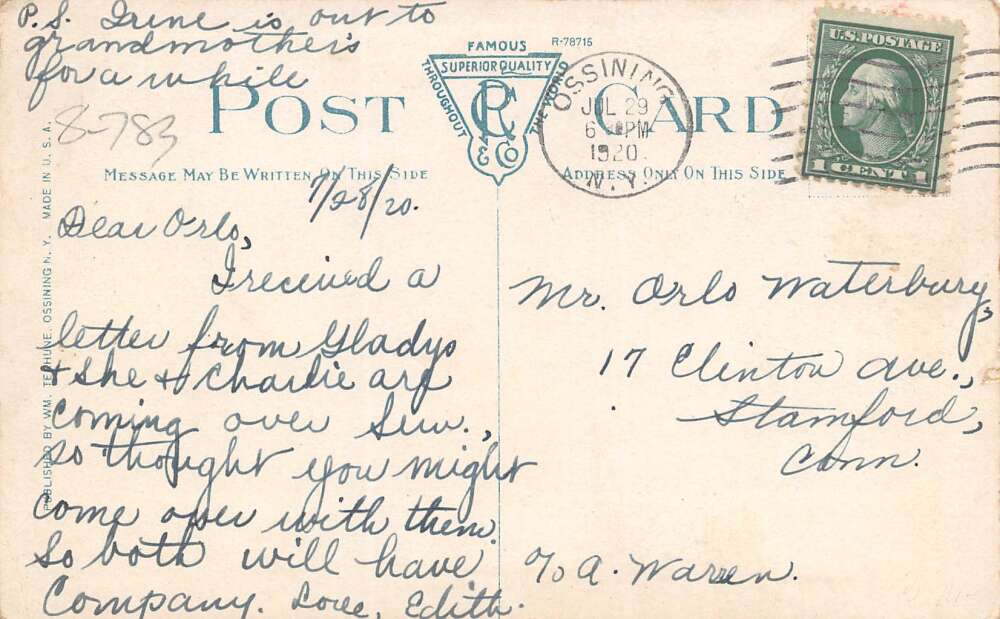 P.S. Irene is out to
grandmother's
for a while
8-783
FAMOUS
R-78715
SUPERIOR QUALITY
THROUGHOUT
THE WORLD
CRC
& Co
POST CARD
MESSAGE MAY BE WRITTEN ON THIS SIDE
ADDRESS ONLY ON THIS SIDE
OSSINING
JUL 29
6 PM
1920
N.Y.
U.S. POSTAGE
1 CENT 1
PUBLISHED BY WM. TERHUNE. OSSINING N. Y. MADE IN U. S. A.
7/28/20.
Dear Orlo,
I received a
letter from Gladys
& she & Charlie are
coming over Sun.,
so thought you might
come over with them.
So both will have
Company. Love, Edith.
Mr. Orlo Waterbury,
17 Clinton Ave.,
Stamford,
Conn.
c/o A. Warren.